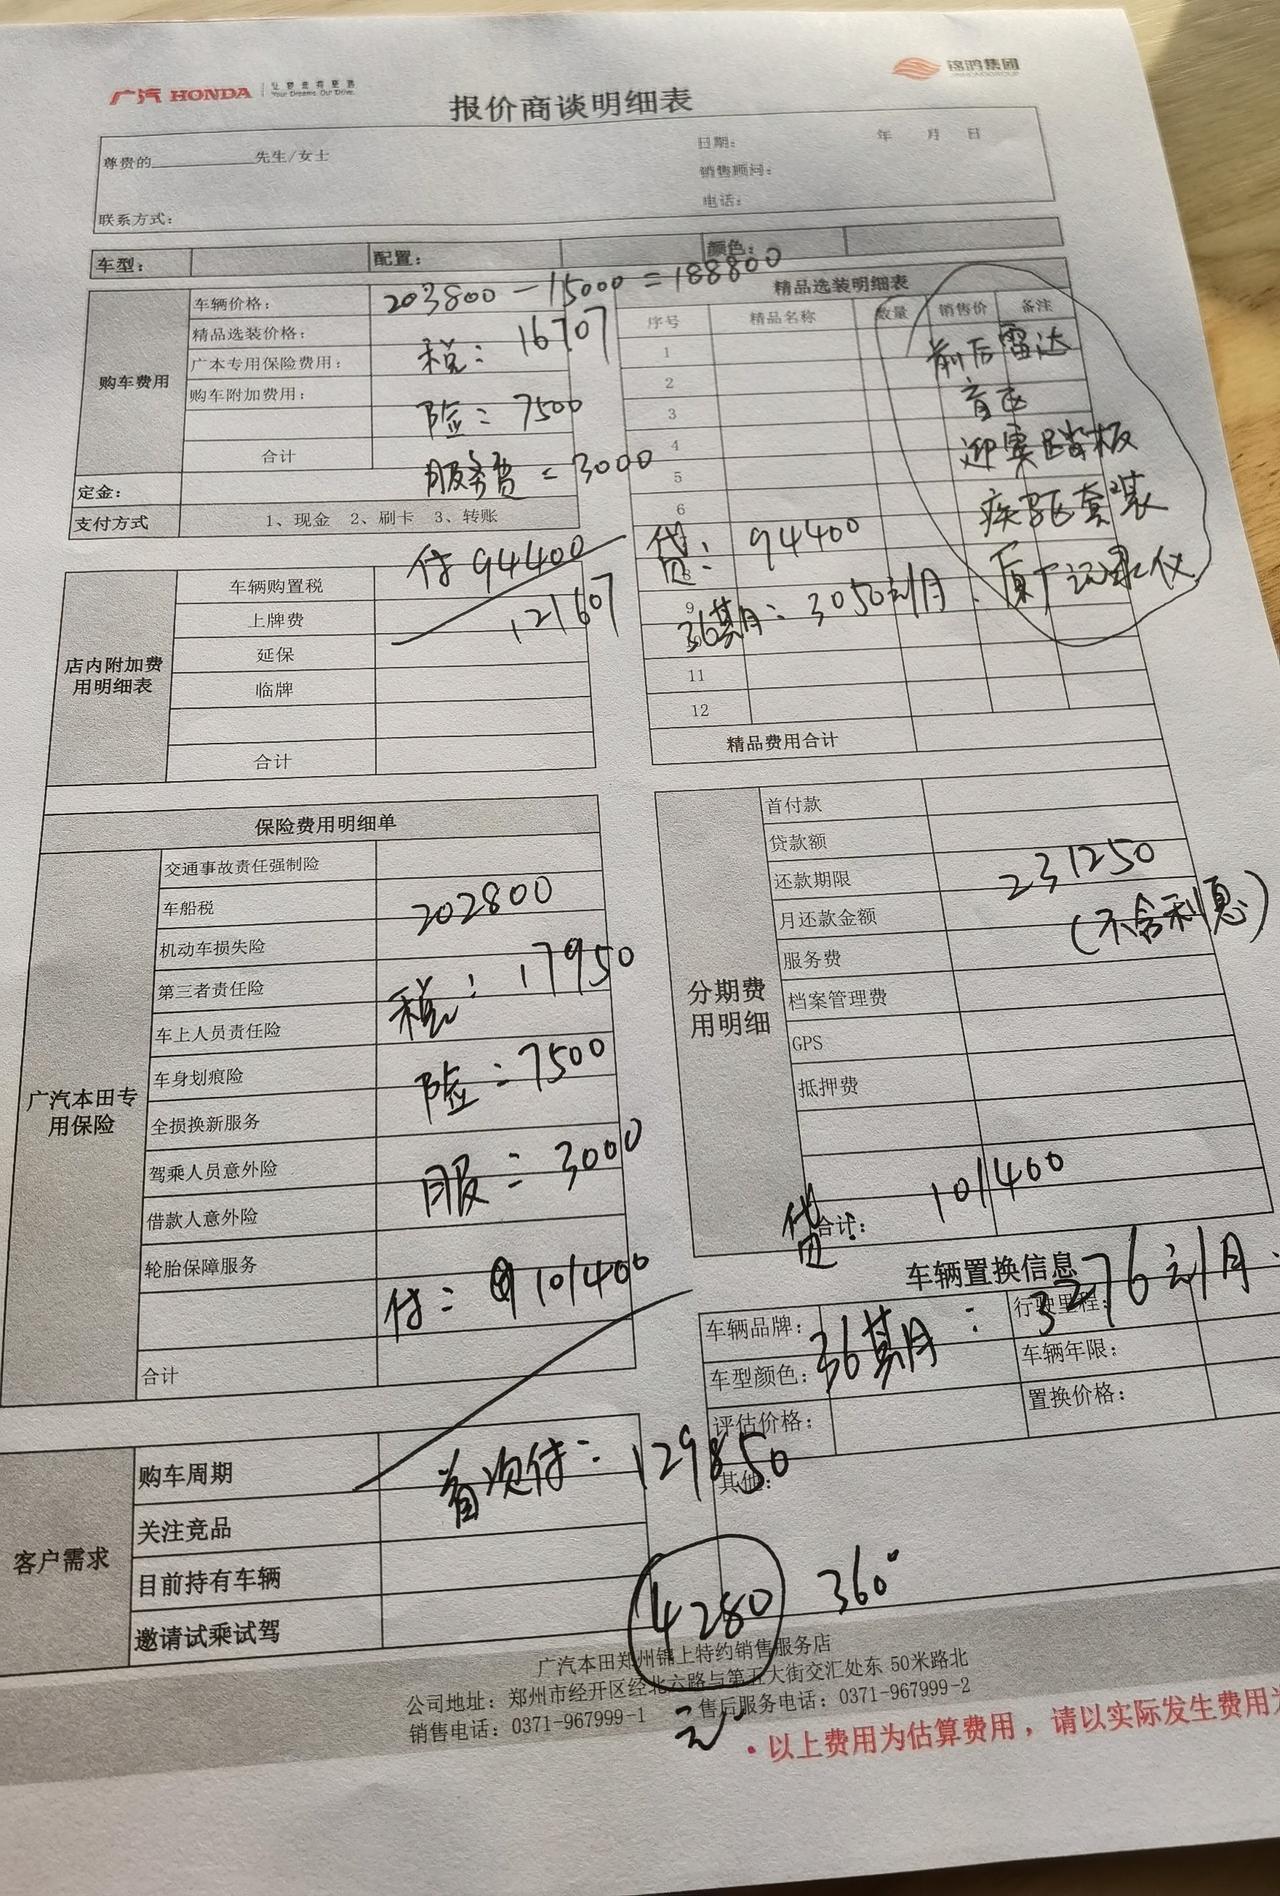 广汽 HONDA 让梦走得更远
Your Dreams, Our Drive.
锦鸿集团
JINHONGGROUP
报价商谈明细表
尊贵的 先生/女士
日期： 年 月 日
销售顾问：
联系方式：
电话：
车型： 配置： 颜色：
购车费用
车辆价格： 203800-15000=188800
精品选装价格：
税：16707
广本专用保险费用：
购车附加费用：
险：7500
合计
服务费=3000
定金：
支付方式 1、现金 2、刷卡 3、转账
精品选装明细表
序号 精品名称 数量 销售价 备注
1
2
3
4
5
6
9
11
12
前后雷达
盲区
迎宾踏板
疾驱套装
原厂记录仪
贷：94400
36期：3050元/月
精品费用合计
店内附加费用明细表
车辆购置税
付94400
上牌费
121607
延保
临牌
合计
保险费用明细单
广汽本田专用保险
交通事故责任强制险
车船税
202800
机动车损失险
第三者责任险
税：17950
车上人员责任险
车身划痕险
险：7500
全损换新服务
驾乘人员意外险
服：3000
借款人意外险
轮胎保障服务
付：101400
合计
分期费用明细
首付款
贷款额
还款期限
231250
月还款金额
(不含利息)
服务费
档案管理费
GPS
抵押费
合计：
贷：101400
车辆置换信息
36期月：3276元/月
车辆品牌： 行驶里程：
车型颜色： 车辆年限：
评估价格： 置换价格：
其他：
客户需求
购车周期
首次付：129850
关注竞品
目前持有车辆
邀请试乘试驾
4280元
360°
广汽本田郑州锦上特约销售服务店
公司地址：郑州市经开区经北六路与第五大街交汇处东 50米路北
销售电话：0371-967999-1 售后服务电话：0371-967999-2
·以上费用为估算费用，请以实际发生费用为